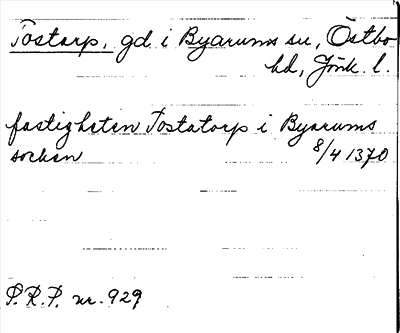 Tostarp, gd i Byarums sn, Östbo
hd, Jönk. l.
fastigheten Tostatorp i Byarums
socken 8/4 1370
P.R.P. nr. 929